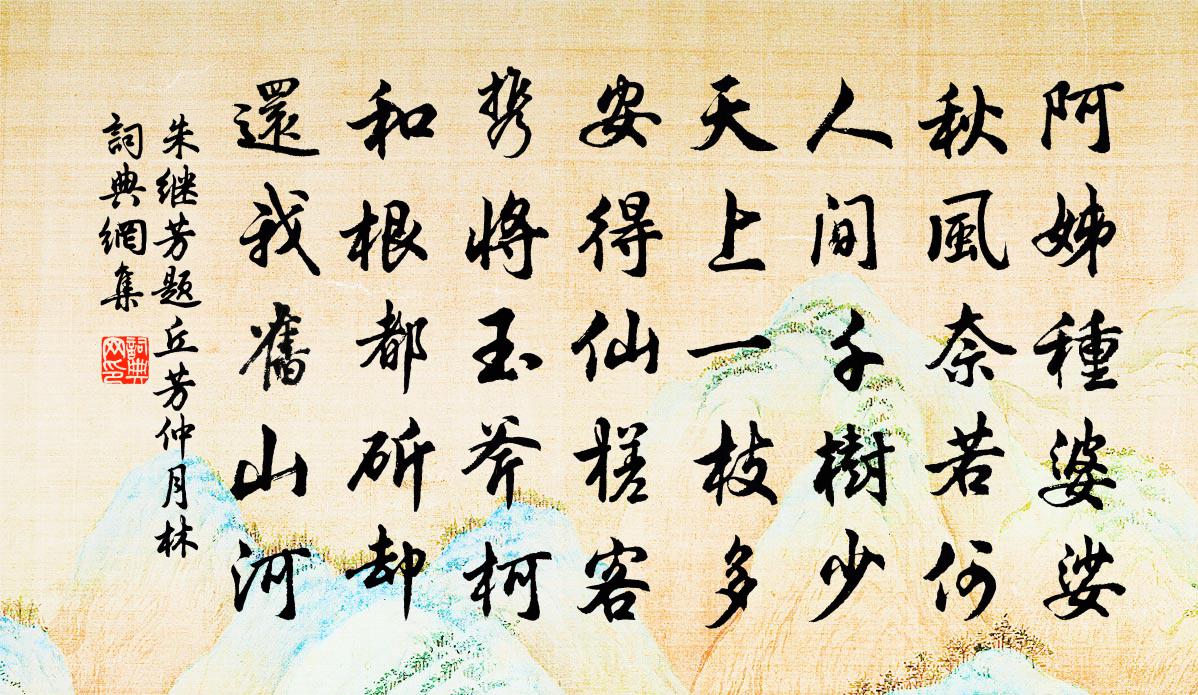 阿姊種婆娑
秋風奈若何
人間千樹少
天上一枝多
安得仙槎客
携將玉斧柯
和根都斫却
還我舊山河
朱继芳题丘芳仲月林
詞典網集
詞典網印